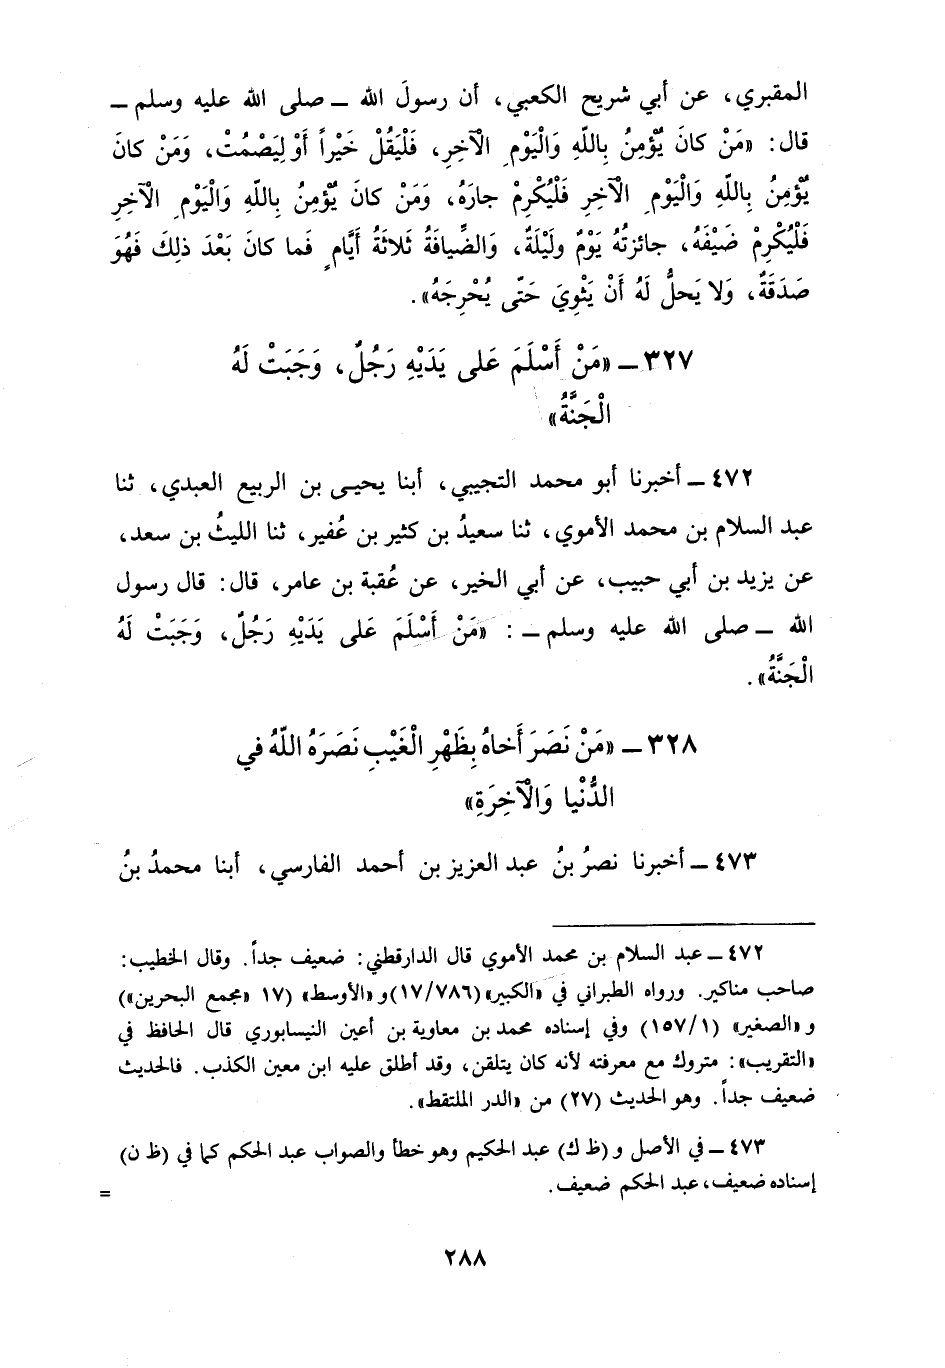 المقبري، عن أبي شريح الكعبي، أن رسولَ الله ــ صلى الله عليه وسلم ــ
قال: «مَنْ كانَ يُؤْمِنُ بِاللَّهِ وَالْيَوْمِ الْآخِرِ، فَلْيَقُلْ خَيْراً أَوْ لِيَصْمُتْ، وَمَنْ كانَ
يُؤْمِنُ بِاللَّهِ وَالْيَوْمِ الْآخِرِ فَلْيُكْرِمْ جارَهُ، وَمَنْ كانَ يُؤْمِنُ بِاللَّهِ وَالْيَوْمِ الْآخِرِ
فَلْيُكْرِمْ ضَيْفَهُ، جائزتُهُ يَوْمٌ ولَيْلَةٌ، وَالضِّيافَةُ ثَلاثَةُ أَيَّامٍ فَما كانَ بَعْدَ ذلِكَ فَهُوَ
صَدَقَةٌ، وَلا يَحلُّ لَهُ أَنْ يَثْوِيَ حَتّى يُحْرِجَهُ».
٣٢٧ ــ «مَنْ أَسْلَمَ عَلى يَدَيْهِ رَجُلٌ، وَجَبَتْ لَهُ
الْجَنَّةُ»
٤٧٢ ــ أخبرنا أبو محمد التجيبي، أبنا يحيى بن الربيع العبدي، ثنا
عبد السلام بن محمد الأموي، ثنا سعيدُ بن كثير بن عُفير، ثنا الليثُ بن سعد،
عن يزيد بن أبي حبيب، عن أبي الخير، عن عُقبة بن عامر، قال: قال رسول
الله ــ صلى الله عليه وسلم ــ: «مَنْ أَسْلَمَ عَلى يَدَيْهِ رَجُلٌ، وَجَبَتْ لَهُ
الْجَنَّةُ».
٣٢٨ ــ «مَنْ نَصَرَ أَخاهُ بِظَهْرِ الْغَيْبِ نَصَرَهُ اللَّهُ في
الدُّنْيا وَالْآخِرَةِ»
٤٧٣ ــ أخبرنا نصرُ بنُ عبد العزيز بن أحمد الفارسي، أبنا محمدُ بنُ
٤٧٢ ــ عبد السلام بن محمد الأموي قال الدارقطني: ضعيف جداً. وقال الخطيب:
صاحب مناكير. ورواه الطبراني في «الكبير» (١٧/٧٨٦) و«الأوسط» (١٧ «مجمع البحرين»)
و «الصغير» (١٥٧/١) وفي إسناده محمد بن معاوية بن أعين النيسابوري قال الحافظ في
«التقريب»: متروك مع معرفته لأنه كان يتلقن، وقد أطلق عليه ابن معين الكذب. فالحديث
ضعيف جداً. وهو الحديث (٢٧) من «الدر الملتقط».
٤٧٣ ــ في الأصل و (ظ ك) عبد الحكيم وهو خطأ والصواب عبد الحكم كما في (ظ ن)
إسناده ضعيف، عبد الحكم ضعيف.
=
٢٨٨